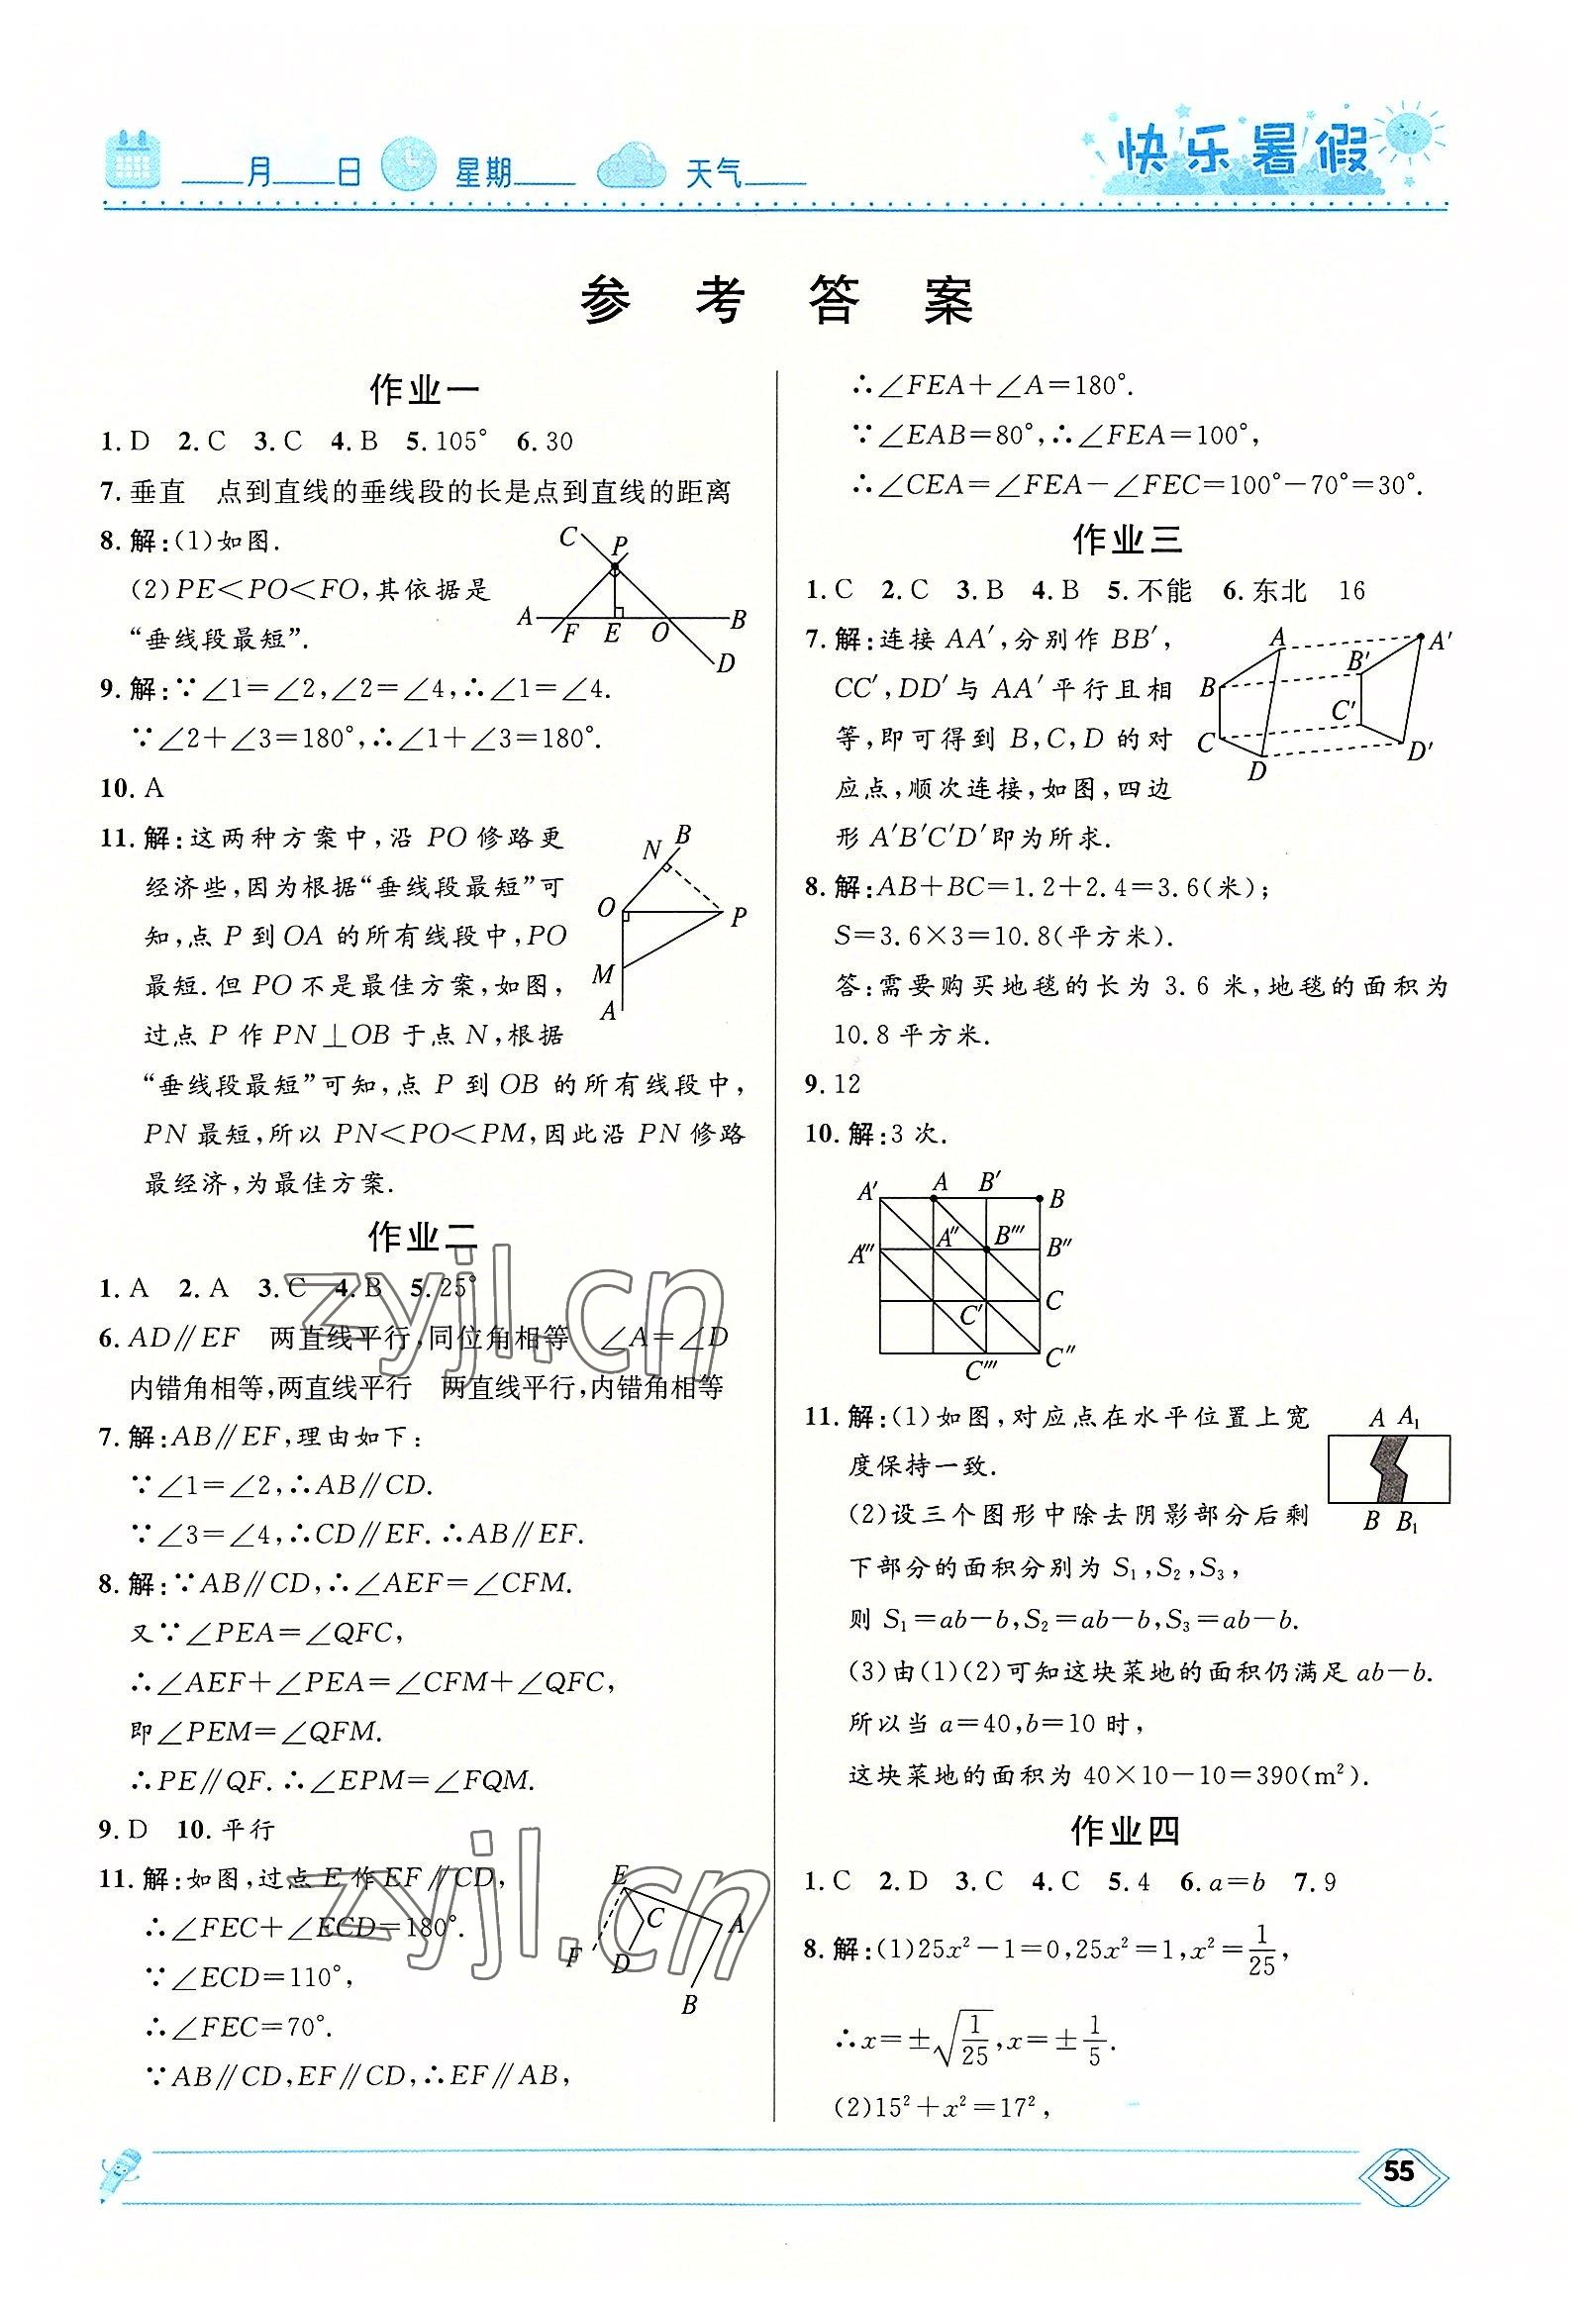 ____月____日 星期____ 天气____
快乐暑假
参 考 答 案
作业一
1. D 2. C 3. C 4. B 5. 105° 6. 30
7. 垂直 点到直线的垂线段的长是点到直线的距离
8. 解:(1)如图.
(2)PE<PO<FO,其依据是
“垂线段最短”.
C P A F E O B D
9. 解:∵∠1=∠2,∠2=∠4,∴∠1=∠4.
∵∠2+∠3=180°,∴∠1+∠3=180°.
10. A
11. 解:这两种方案中,沿 PO 修路更
经济些,因为根据“垂线段最短”可
知,点 P 到 OA 的所有线段中,PO
最短.但 PO 不是最佳方案,如图,
过点 P 作 PN⊥OB 于点 N,根据
“垂线段最短”可知,点 P 到 OB 的所有线段中,
PN 最短,所以 PN<PO<PM,因此沿 PN 修路
最经济,为最佳方案.
B N O P M A
作业二
1. A 2. A 3. C 4. B 5. 25°
6. AD∥EF 两直线平行,同位角相等 ∠A=∠D
内错角相等,两直线平行 两直线平行,内错角相等
7. 解:AB∥EF,理由如下:
∵∠1=∠2,∴AB∥CD.
∵∠3=∠4,∴CD∥EF.∴AB∥EF.
8. 解:∵AB∥CD,∴∠AEF=∠CFM.
又∵∠PEA=∠QFC,
∴∠AEF+∠PEA=∠CFM+∠QFC,
即∠PEM=∠QFM.
∴PE∥QF.∴∠EPM=∠FQM.
9. D 10. 平行
11. 解:如图,过点 E 作 EF∥CD,
∴∠FEC+∠ECD=180°.
∵∠ECD=110°,
∴∠FEC=70°.
∵AB∥CD,EF∥CD,∴EF∥AB,
E C A F D B
∴∠FEA+∠A=180°.
∵∠EAB=80°,∴∠FEA=100°,
∴∠CEA=∠FEA-∠FEC=100°-70°=30°.
作业三
1. C 2. C 3. B 4. B 5. 不能 6. 东北 16
7. 解:连接 AA′,分别作 BB′,
CC′,DD′与 AA′平行且相
等,即可得到 B,C,D 的对
应点,顺次连接,如图,四边
形 A′B′C′D′即为所求.
A A′ B′ B C′ C D D′
8. 解:AB+BC=1.2+2.4=3.6(米);
S=3.6×3=10.8(平方米).
答:需要购买地毯的长为 3.6 米,地毯的面积为
10.8 平方米.
9. 12
10. 解:3 次.
A′ A B′ B
A‴ A″ B‴ B″
C′ C
C‴ C″
11. 解:(1)如图,对应点在水平位置上宽
度保持一致.
(2)设三个图形中除去阴影部分后剩
下部分的面积分别为 S₁,S₂,S₃,
则 S₁=ab-b,S₂=ab-b,S₃=ab-b.
(3)由(1)(2)可知这块菜地的面积仍满足 ab-b.
所以当 a=40,b=10 时,
这块菜地的面积为 40×10-10=390(m²).
A A₁
B B₁
作业四
1. C 2. D 3. C 4. C 5. 4 6. a=b 7. 9
8. 解:(1)25x²-1=0,25x²=1,x²=1/25,
∴x=±√(1/25),x=±1/5.
(2)15²+x²=17²,
55
zyjl.cn
zyjl.cn